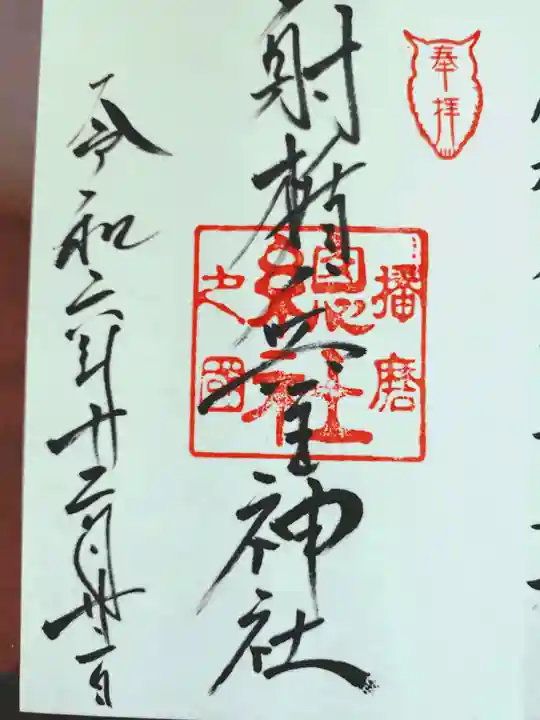 奉拝
射楯兵主神社
播磨
總社
之國
令和六年十二月卅一日